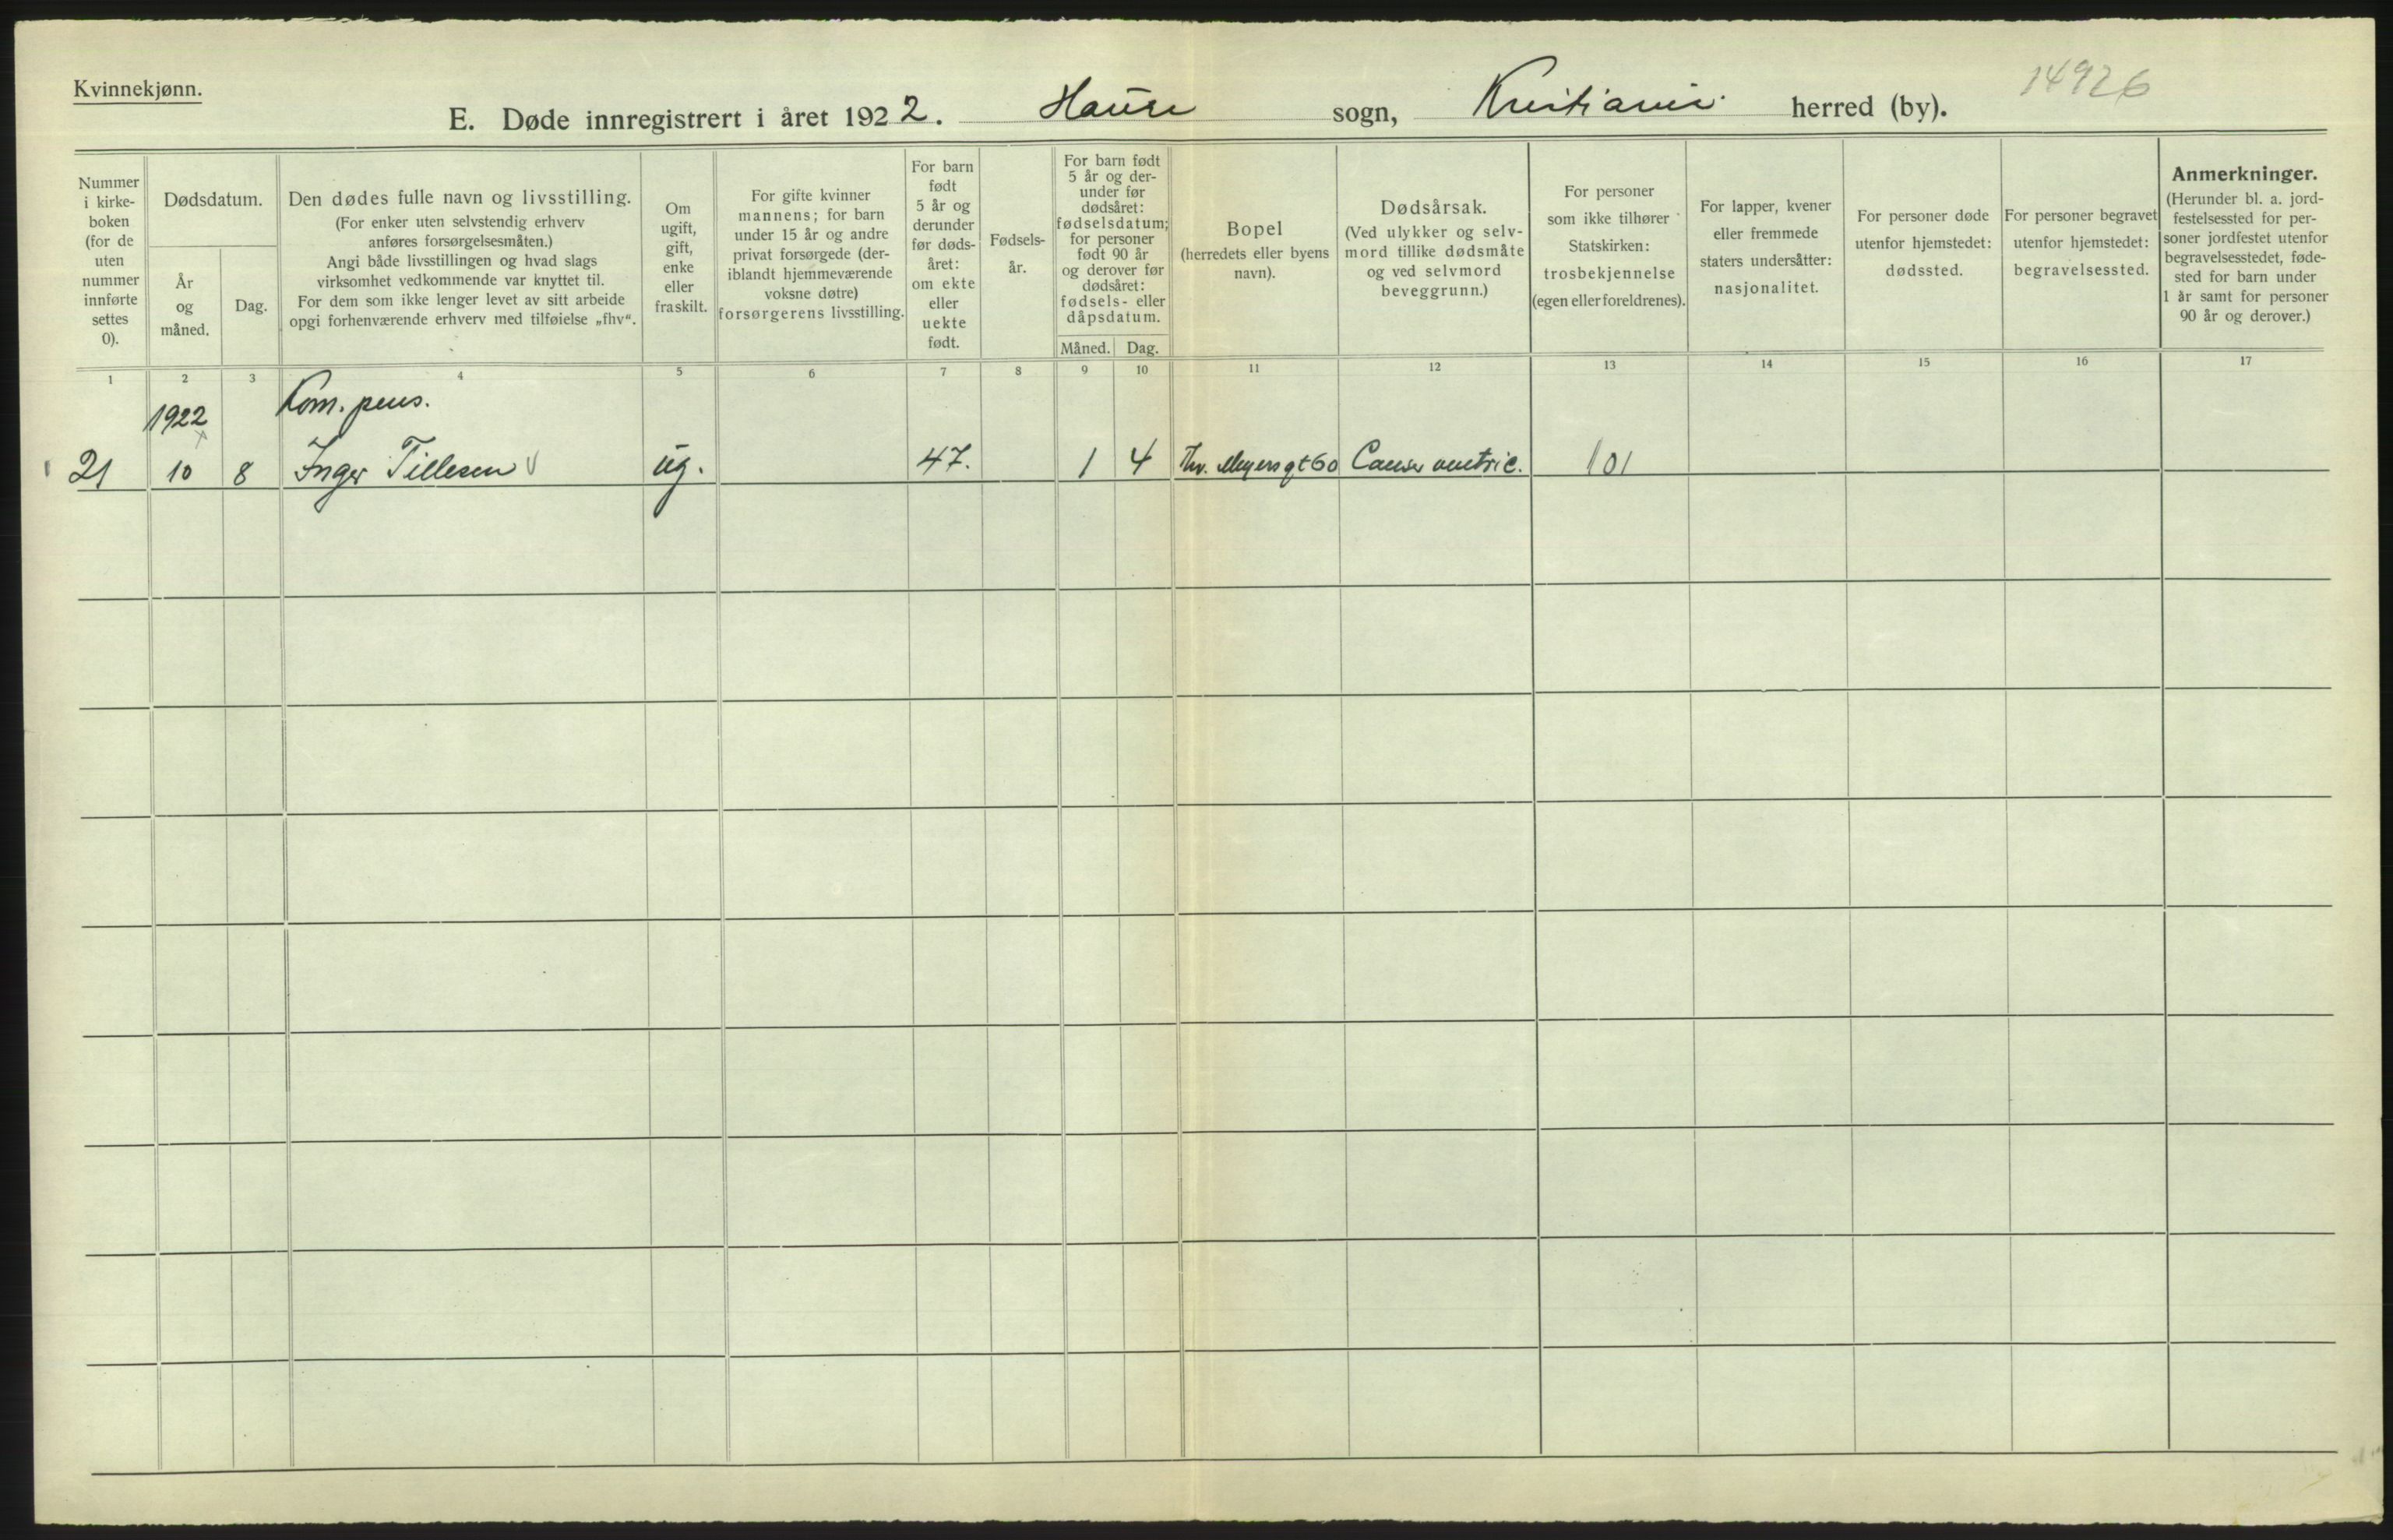 Kvinnekjønn.
14926
E. Døde innregistrert i året 1922. Hauge sogn, Kristiania herred (by).
Nummer
i kirke-
boken
(for de
uten
nummer
innførte
settes
0).
Dødsdatum.
År
og
måned.
Dag.
Den dødes fulle navn og livsstilling.
(For enker uten selvstendig erhverv
anføres forsørgelsesmåten.)
Angi både livsstillingen og hvad slags
virksomhet vedkommende var knyttet til.
For dem som ikke lenger levet av sitt arbeide
opgi forhenværende erhverv med tilføielse „fhv“.
Om
ugift,
gift,
enke
eller
fraskilt.
For gifte kvinner
mannens; for barn
under 15 år og andre
privat forsørgede (der-
iblandt hjemmeværende
voksne døtre)
forsørgerens livsstilling.
For barn
født
5 år og
derunder
før døds-
året:
om ekte
eller
uekte
født.
Fødsels-
år.
For barn født
5 år og der-
under før
dødsåret:
fødselsdatum;
for personer
født 90 år
og derover før
dødsåret:
fødsels- eller
dåpsdatum.
Måned. Dag.
Bopel
(herredets eller byens
navn).
Dødsårsak.
(Ved ulykker og selv-
mord tillike dødsmåte
og ved selvmord
beveggrunn.)
For personer
som ikke tilhører
Statskirken:
trosbekjennelse
(egen eller foreldrenes).
For lapper, kvener
eller fremmede
staters undersåtter:
nasjonalitet.
For personer døde
utenfor hjemstedet:
dødssted.
For personer begravet
utenfor hjemstedet:
begravelsessted.
Anmerkninger.
(Herunder bl. a. jord-
festelsessted for per-
soner jordfestet utenfor
begravelsesstedet, føde-
sted for barn under
1 år samt for personer
90 år og derover.)
1 2 3 4 5 6 7 8 9 10 11 12 13 14 15 16 17
1922 Kom. pens.
21 10 8 Inger Tillesen ug. 47. 1 4 Thv. Meyers gt 60 Cancer ventric. 101